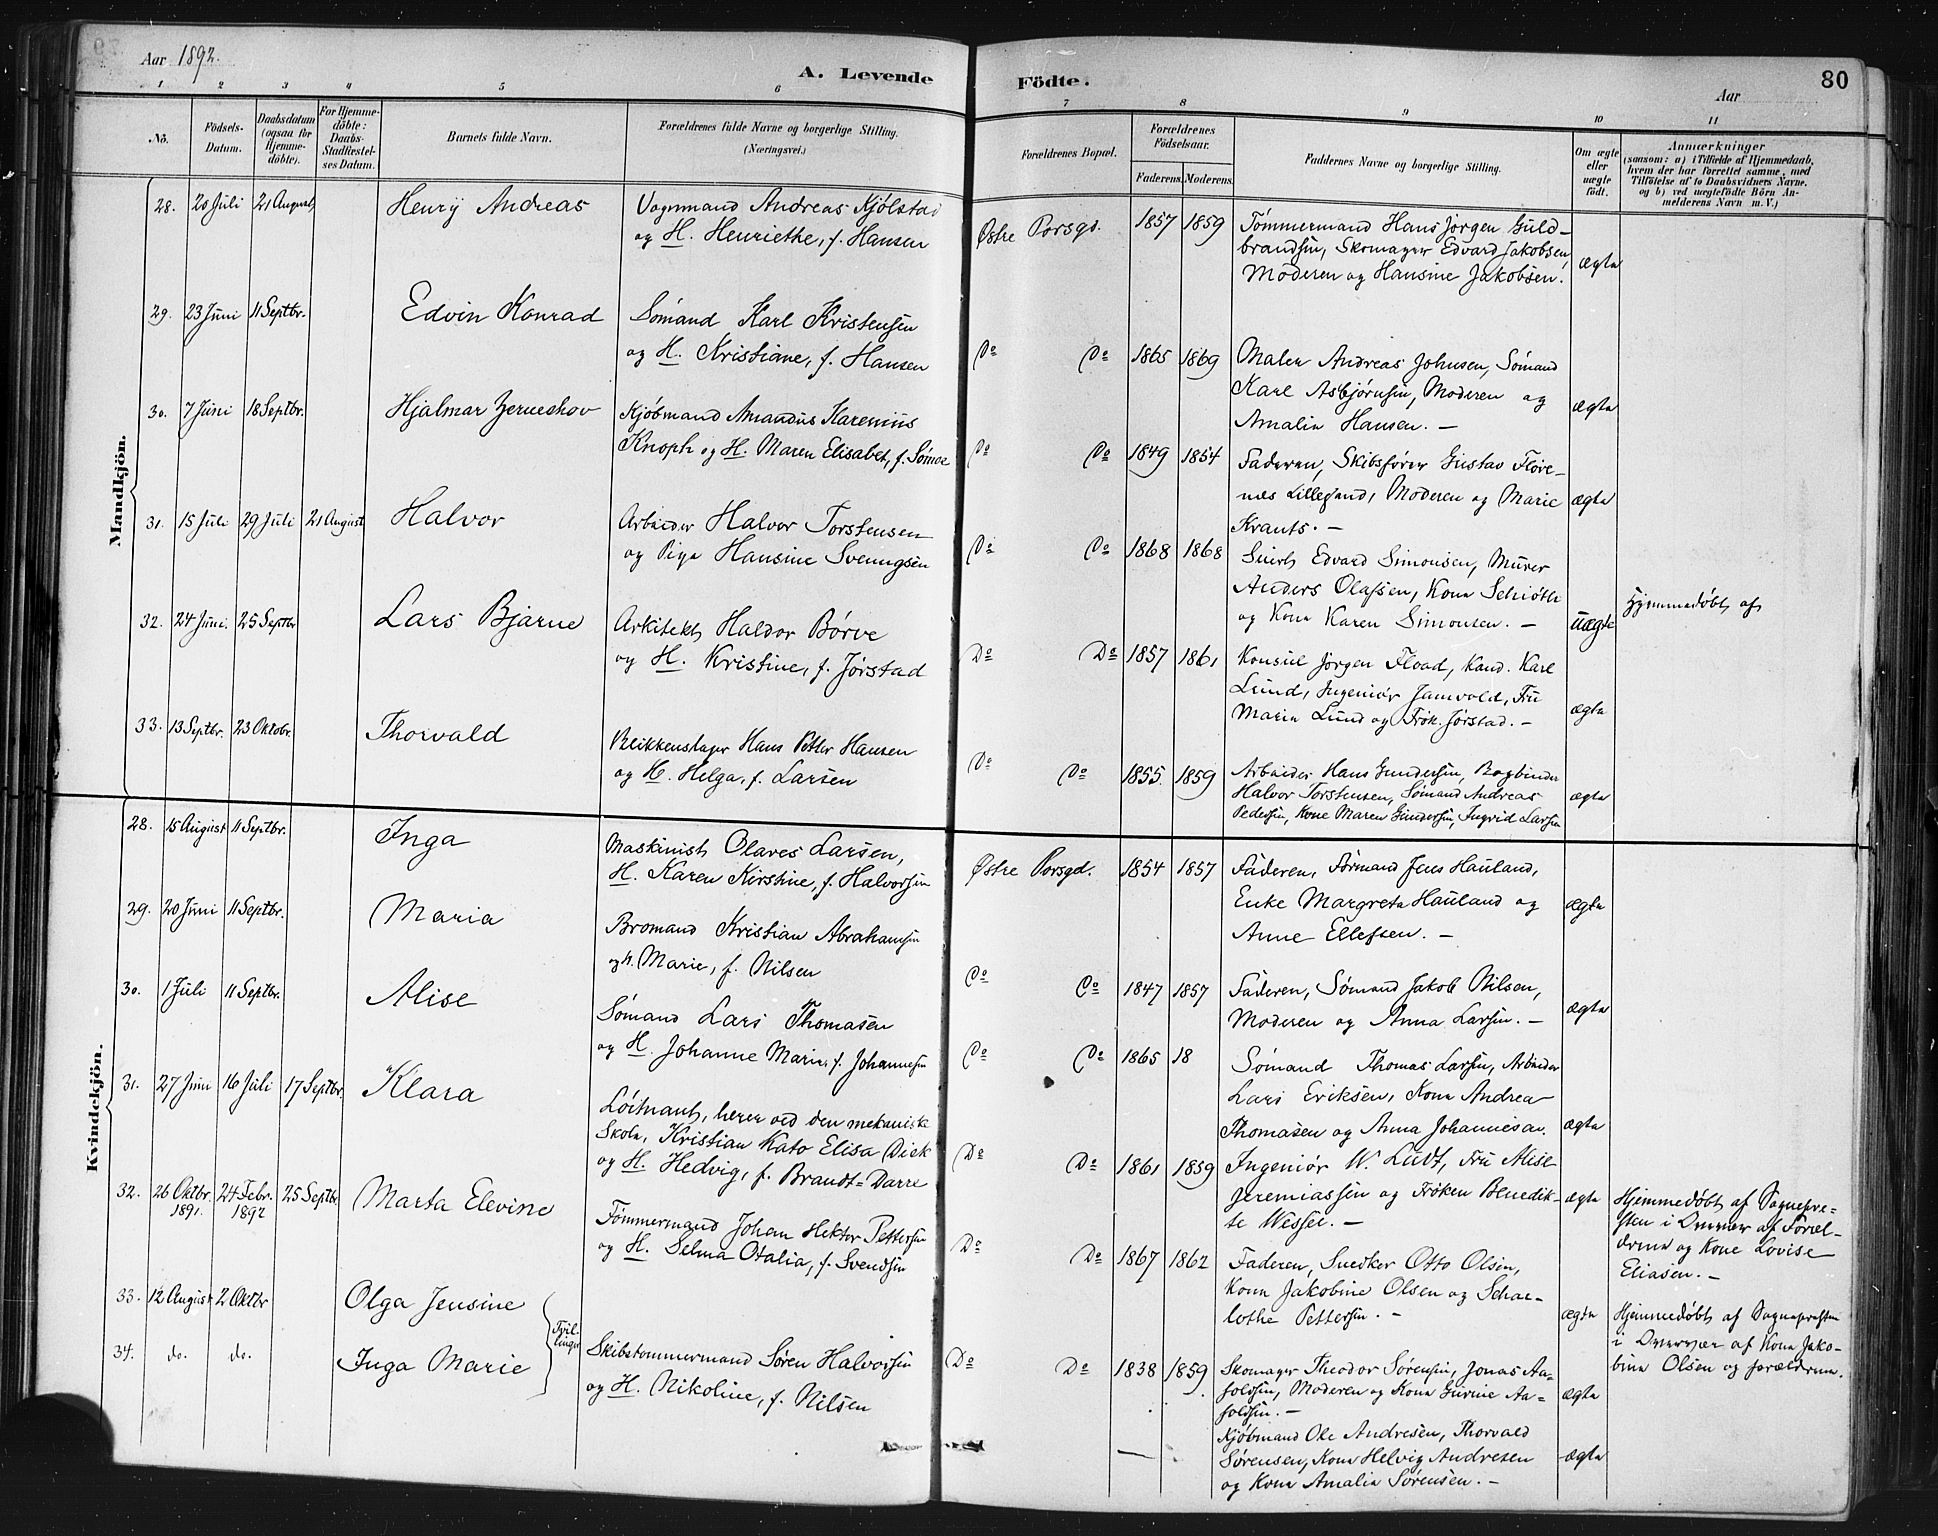 Aar 1892.
A. Levende
Födte.
Aar
80
1 2 3 4 5 6 7 8 9 10 11
No.
Födsels-Datum.
Daabsdatum (ogsaa for Hjemme-döbte).
For Hjemme-döbte: Daabs-Stadfæstel-ses Datum.
Barnets fulde Navn.
Forældrenes fulde Navne og borgerlige Stilling.
(Næringsvei.)
Forældrenes Bopæl.
Forældrenes Födselsaar.
Faderens. Moderens.
Faddernes Navne og borgerlige Stilling.
Om ægte eller uægte födt.
Anmærkninger
(saasom: a) i Tilfælde af Hjemmedaab, hvem der har forrettet samme, med Tilföielse af to Daabsvidners Navne. og b) ved uægtefödte Börn An-melderens Navn m. V.)
Mandkjön.
28. 20 Juli 21 August Henry Andreas
Vognmand Andreas Kjölstad
og H. Henriethe, f. Hansen
Østre Porsgd. 1857 1859
Tømmermand Hans Jørgen Guld-
brandsen, Skomager Edvard Jakobsen,
Moderen og Hansine Jakobsen.
ægte
29. 23 Juni 11 Septbr. Edvin Konrad
Sømand Karl Kristensen
og H. Kristiane, f. Hansen
Do Do 1865 1869
Maler Andreas Johnsen, Sømand
Karl Asbjørnsen, Moderen og
Amalie Hansen. —
ægte
30. 7 Juni 18 Septbr. Hjalmar Jerneskov
Kjøbmand Amandus Karenius
Knoph og H. Maren Elisabet, f. Sømoe
Do Do 1849 1854
Faderen, Skibsfører Gustav Flore-
nes Lillesand, Moderen og Marie
Krants. —
ægte
31. 15 Juli 29 Juli 21 August Halvor
Arbeider Halvor Torstensen
og Pige Hansine Svenngsen
Do Do 1868 1868
Smed Edvard Simonsen, Murer
Anders Olafsen, Kone Schiøth
og Kone Karen Simonsen. —
uægte
Hjemmedøbt af
32. 24 Juni. 25 Septbr Lars Bjarne
Arkitekt Haldor Børve
og H. Kristine, f. Jørstad
Do Do 1857 1861
Konsul Jørgen Flood, Kand. Karl
Lund, Ingeniør Jamvold, Fru
Marie Lund og Frøk. Jørstad. —
ægte
33. 13 Septbr. 23 Oktobr. Thorvald
Blikkenslager Hans Petter Hansen
og H. Helga, f. Larsen
Do Do 1855. 1859
Arbeider Hans Gundersen, Bogbinder
Halvor Torstensen, Sømand Andreas
Pedersen, Kone Maren Gundersen, Ingrid Larsen
ægte
Kvindekjön.
28. 15 August 11 Septbr. Inga
Maskinist Olaves Larsen,
H. Karen Kirstine, f. Halvorsen
Østre Porsgd. 1854 1857
Faderen, Formand Jens Hauland,
Enke Margrete Hauland og
Anne Ellefsen. —
ægte
29. 20 Juni 11 Septbr. Maria
Bromand Kristian Abrahamsen
og H. Marie, f. Nilsen
Do Do 1847 1857
Faderen, Sømand Jakob Nilsen,
Moderen og Anna Larsen. —
ægte
30. 1 Juli 11 Septbr. Alise
Sømand Lars Thomasen
og H. Johanne Marie, f. Johannesen
Do Do 1865 18
Sømand Thomas Larsen, Arbeider
Lars Eriksen, Kone Andrea
Thomasen og Anna Johannesen.
ægte
31. 27 Juni 16 Juli 17 Septbr. Klara
Løitnant, lærer ved den mekaniske
Skole, Kristian Kato Elisa Dick
og H. Hedvig, f. Brandt-Darre
Do Do 1861 1859
Ingeniør W. Ludt, Fru Alise
Jeremiassen og Frøken Benedik-
te Wessel. —
ægte
Hjemmedøbt af Sognepre-
sten i af Foræl-
drene og Kone Lovise
Eliasen. —
32. 26 Oktbr. 1891. 24 Febr. 1892 25 Septbr. Marta Elevine
Tømmermand Johan Hektor Pettersen
og H. Selma Otalia, f. Svendsen
Do Do 1867 1862
Faderen, Snedker Otto Olsen,
Kone Jakobine Olsen og Schar-
lothe Pettersen. —
ægte
Hjemmedøbt af Sognepresten
i af Kone Jako-
bine Olsen og forældrene.
33. 12 August 2 Oktbr Olga Jensine
34. do. do. Inga Marie
Tvil-
linger
Skibstømmermand Søren Halvorsen
og H. Nikoline, f. Nilsen
Do Do 1838 1859
Skomager Theodor Sørensen, Jonas Aa-
foldsen, Moderen og Kone Gurine Aa-
foldsen. —
ægte
Kjøbmand Ole Andresen, Thorvald
Sørensen, Kone Helvig Andresen
og Kone Amalie Sørensen. —
ægte